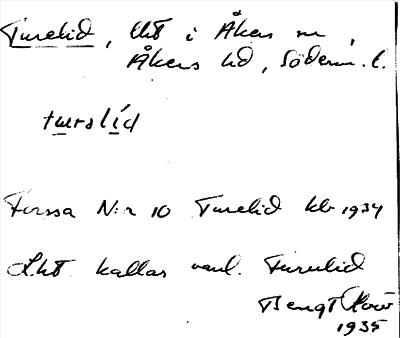 Turelid, lht i Åkers sn,
Åkers hd, Söderm. l.
turslíd
Forssa N:r 10 Turelid kb 1934
Lht kallas vanl. Turelid
Bengt
1935